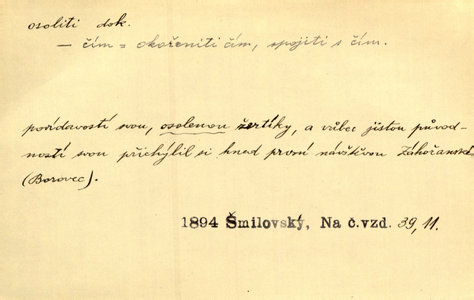 osoliti dok.
— čím = okořeniti čím, spojiti s čím.
povídavostí svou, osolenou žertíky, a vůbec jistou původ-
ností svou přichýlil si hned první návštěvou Záhořanské
(Borovec).
1894 Šmilovský, Na č.vzd. 39, 11.